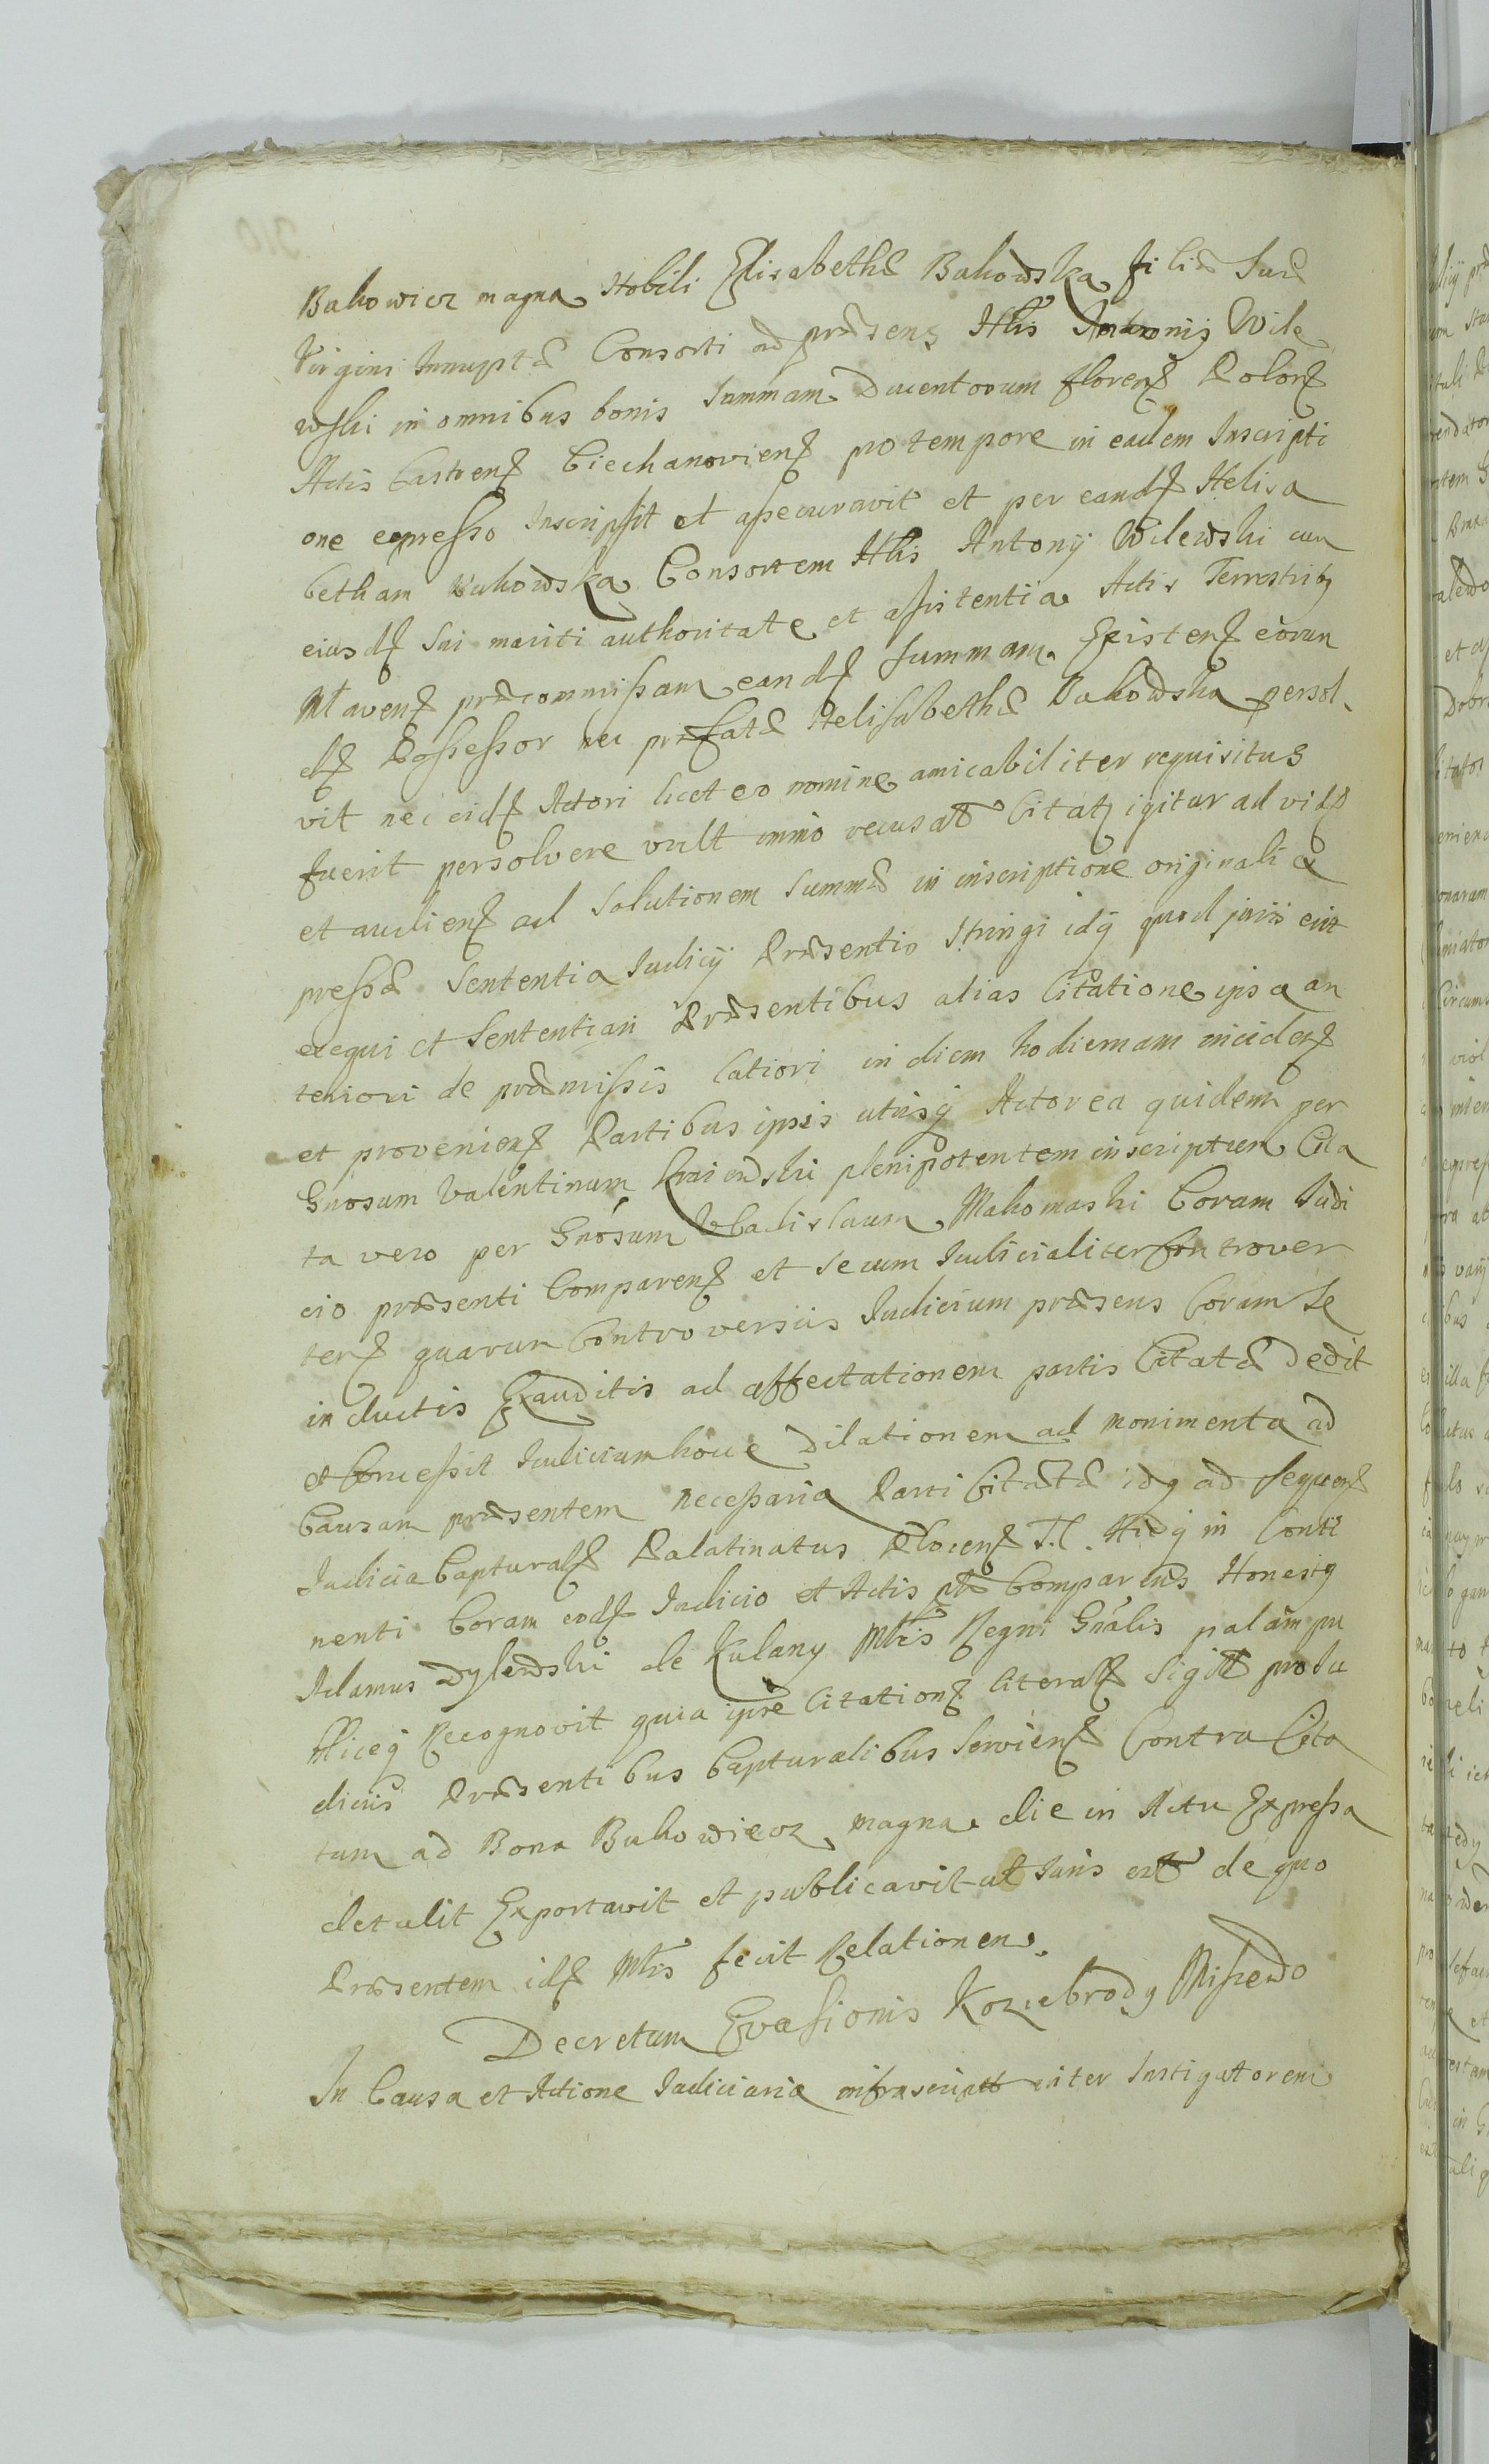 Bukowicz magna Nobili Elisabethæ Bukowska filiæ suæ
Virgini Innuptæ Consorti ad præsens Nblis Antonij Wile
wski in omnibus bonis summam Ducentorum florenƶ Polonƶ
Actis Castrenƶ Ciechanovienƶ pro tempore in eadem Inscripti
one expresso Inscripsit et assecuravit et per eandƶ Helisa
betham Bukowska Consortem Nblis Antonij Wilewski cum
eiusdƶ sui mariti authoritate et assistentia Actis Terrestribꝫ
Mlavenƶ præcommissam eandƶ summam. Existenƶ eorun
dƶ Possessor nec præfatæ Helisabethæ Bukowska persol
vit nec eidƶ Actori licet eo nomine amicabiliter requisitus
fuerit persolvere vult immo recusat Citatꝫ igitur ad vidƶ
et audienƶ ad solutionem summæ in inscriptione originali ex
pressæ sententia Iudicij Præsentis stringi idqꝫ quod juris erit
exequi et sententiari Præsentibus alias Citatione ipsa an
teriori de præmissis latiori in diem hodiernam incidenƶ
et provenienƶ Partibus ipsis utrisqꝫ Actorea quidem per
Gnosum Valentinum Kraiewski plenipotentem inscriptum Cita
ta vero per Gnosum Vladislaum Makomaski Coram Iudi
cio præsenti Comparenƶ et secum Iudicialiter Controver
tenƶ quarum Controversiis Iudicium præsens Coram se
inductis Exauditis ad affectationem partis Citatæ dedit
et Concessit Iudicium hocce Dilationem ad monimenta ad
Causam præsentem necessaria Parti Citatæ idqꝫ ad sequenƶ
Iudicia Capturalƶ Palatinatus Plocenƶ T. C. Hicqꝫ in Conti
nenti Coram eodƶ Iudicio et Actis ptibꝫ Comparens Honestꝫ
Adamus Dylewski de Kulany Mtris Regni Gnalis palam pu
bliceqꝫ Recognovit quia ipse Citationƶ literalƶ sigill pro Iu
diciis Præsentibus Capturalibus servienƶ Contra Cita
tum ad Bona Bukowiecz magna die in Actu Expressa
detulit Exportavit et publicavit ut Iuris est de quo
Præsentem idƶ Mtris fecit Relationem.
Decretum Evasionis Koziebrody Miszewo
In Causa et Actione Iudiciaria infrascripta inter Instigatorem